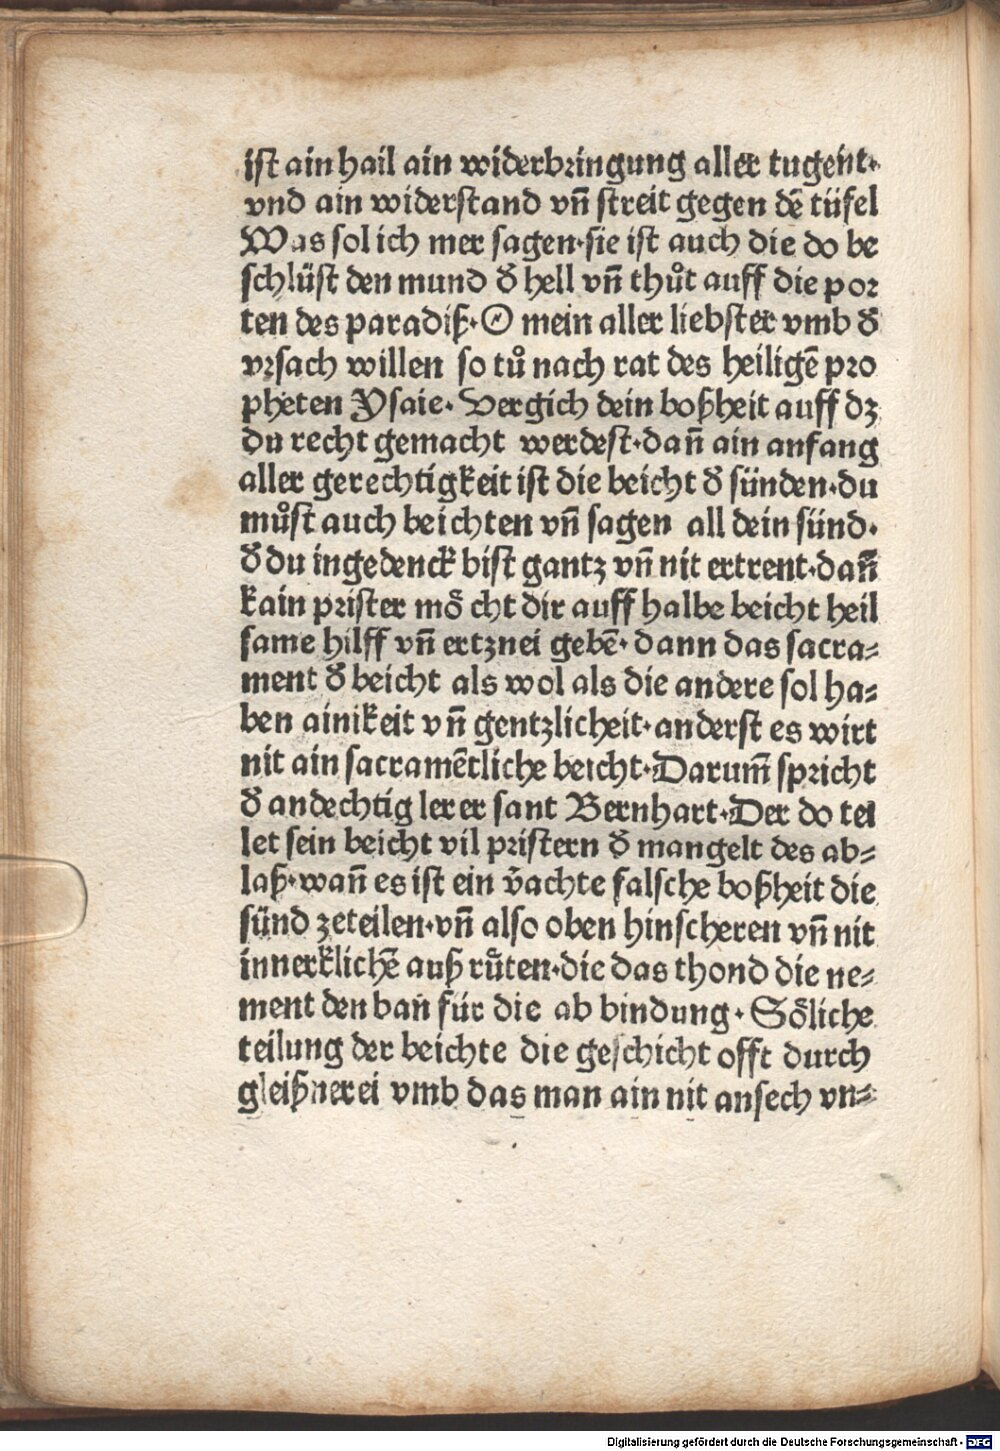 ist ain hail ain widerbringung aller tugent·
vnd ain widerstand vñ streit gegen dē tüfel
Was sol ich mer sagen·sie ist auch die do be
schlüst den mund ð hell vñ thůt auff die por
ten des paradiß·O mein aller liebster vmb ð
vrsach willen so tů nach rat des heiligē pro
pheten Ysaie· Vergich dein boßheit auff dz
du recht gemacht werdest·dañ ain anfang
aller gerechtigkeit ist die beicht ð sünden·du
můst auch beichten vñ sagen all dein sünd·
ð du ingedenck bist gantz vñ nit ertrent·dañ
kain prister moͤcht dir auff halbe beicht heil
same hilff vñ ertznei gebē· dann das sacra⸗
ment ð beicht als wol als die andere sol ha⸗
ben ainikeit vñ gentzlicheit·anderst es wirt
nit ain sacramētliche beicht·Darum̄ spricht
ð andechtig lerer sant Bernhart·Der do tei
let sein beicht vil pristern ð mangelt des ab⸗
laß·wañ es ist ein v̄achte falsche boßheit die
sünd zeteilen·vñ also oben hinscheren vñ nit
innerklichē auß rüten·die das thond die ne⸗
ment den bañ für die ab bindung· Soͤliche
teilung der beichte die geschicht offt durch
gleißnerei vmb das man ain nit ansech vn⸗
Digitalisierung gefördert durch die Deutsche Forschungsgemeinschaft - DFG